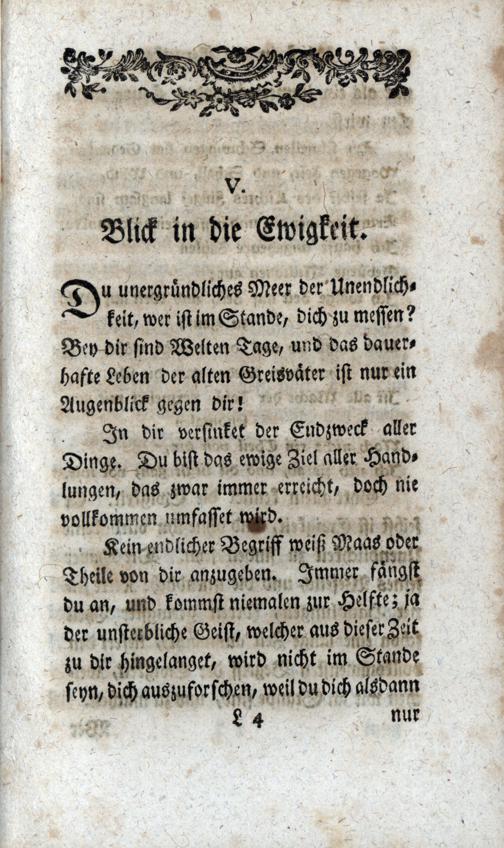 V.
Blick in die Ewigkeit.
Du unergründliches Meer der Unendlich-
keit, wer ist im Stande, dich zu messen?
Bey dir sind Welten Tage, und das dauer-
hafte Leben der alten Greisväter ist nur ein
Augenblick gegen dir!
In dir versinket der Endzweck aller
Dinge. Du bist das ewige Ziel aller Hand-
lungen, das zwar immer erreicht, doch nie
vollkommen umfasset wird.
Kein endlicher Begriff weiß Maas oder
Theile von dir anzugeben. Immer fängst
du an, und kommst niemalen zur Helfte; ja
der unsterbliche Geist, welcher aus dieser Zeit
zu dir hingelanget, wird nicht im Stande
seyn, dich auszuforschen, weil du dich alsdann
L 4
nur